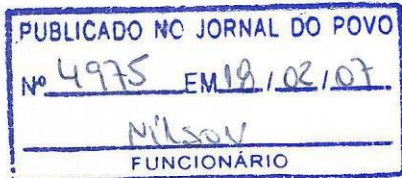 PUBLICADO NO JORNAL DO POVO
Nº 4975 EM 18 / 02 / 07
Nilson
FUNCIONÁRIO